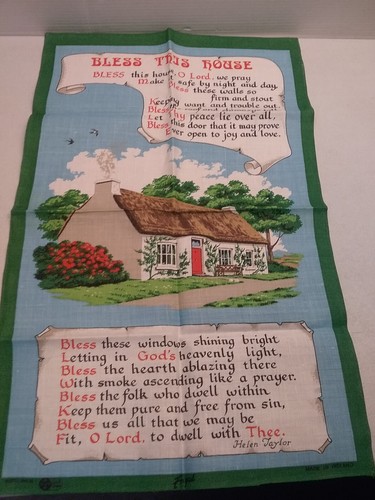 BLESS THIS HOUSE
BLESS this house, O Lord, we pray
Make safe by night and day,
Bless these walls so
firm and stout
Keeping want and trouble out,
Bless
Let Thy peace lie over all,
Bless this door that it may prove
Ever open to joy and love.
Bless these windows shining bright
Letting in God's heavenly light,
Bless the hearth ablazing there
With smoke ascending like a prayer.
Bless the folk who dwell within
Keep them pure and free from sin,
Bless us all that we may be
Fit, O Lord, to dwell with Thee.
Helen Taylor